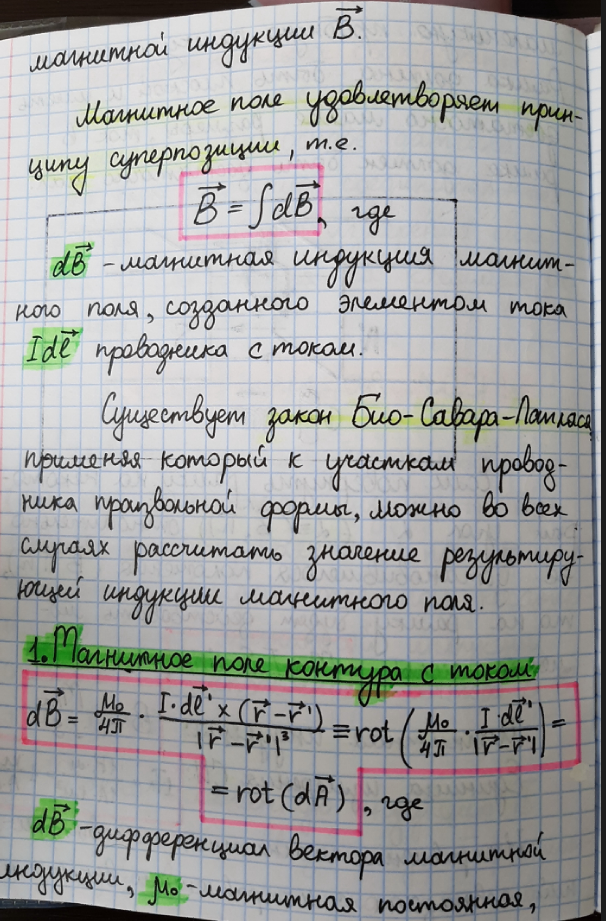 магнитной индукции B⃗.
Магнитное поле удовлетворяет прин-
ципу суперпозиции, т.е.
B⃗ = ∫dB⃗, где
dB⃗ - магнитная индукция магнит-
ного поля, созданного элементом тока
Idl⃗ проводника с током.
Существует закон Био-Савара-Лапласа,
применяя который к участкам провод-
ника произвольной формы, можно во всех
случаях рассчитать значение результиру-
ющей индукции магнитного поля.
1. Магнитное поле контура с током
dB⃗ = μ₀/4π · I·dl⃗' × (r⃗ - r⃗')/|r⃗ - r⃗'|³ ≡ rot(μ₀/4π · I·dl⃗'/|r⃗ - r⃗'|) =
= rot(dA⃗), где
dB⃗ - дифференциал вектора магнитной
индукции, μ₀ - магнитная постоянная,